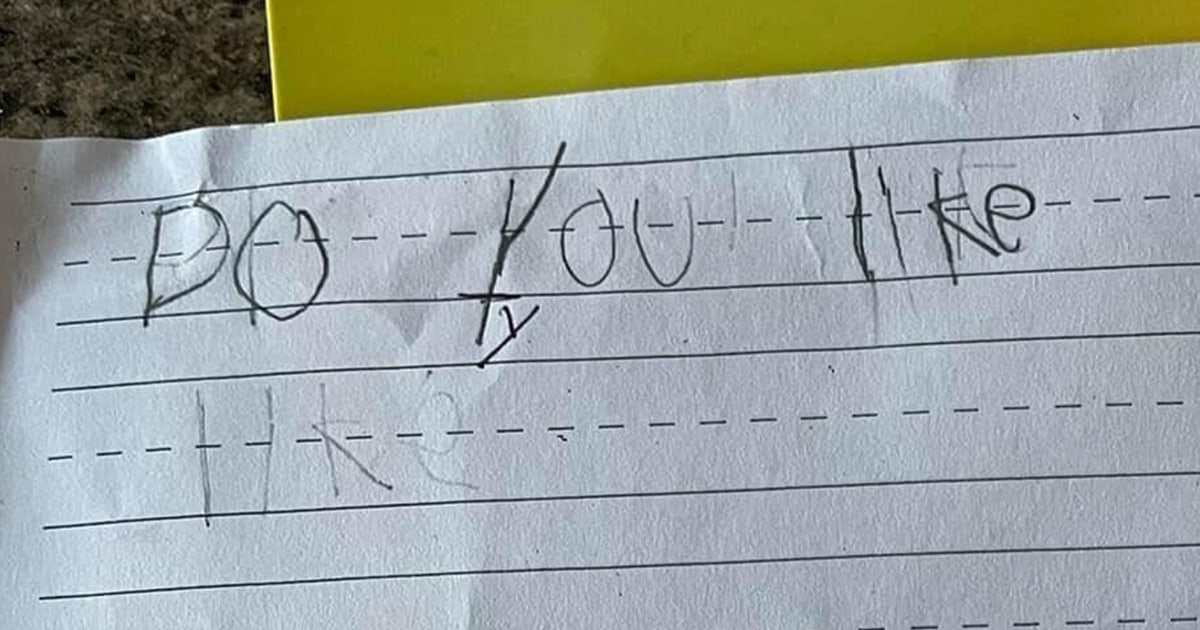 DO You like
y
like